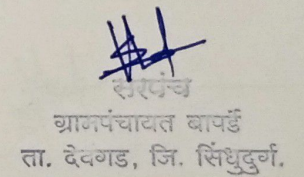 सरपंच
ग्रामपंचायत बापर्डे
ता. देवगड, जि. सिंधुदुर्ग.